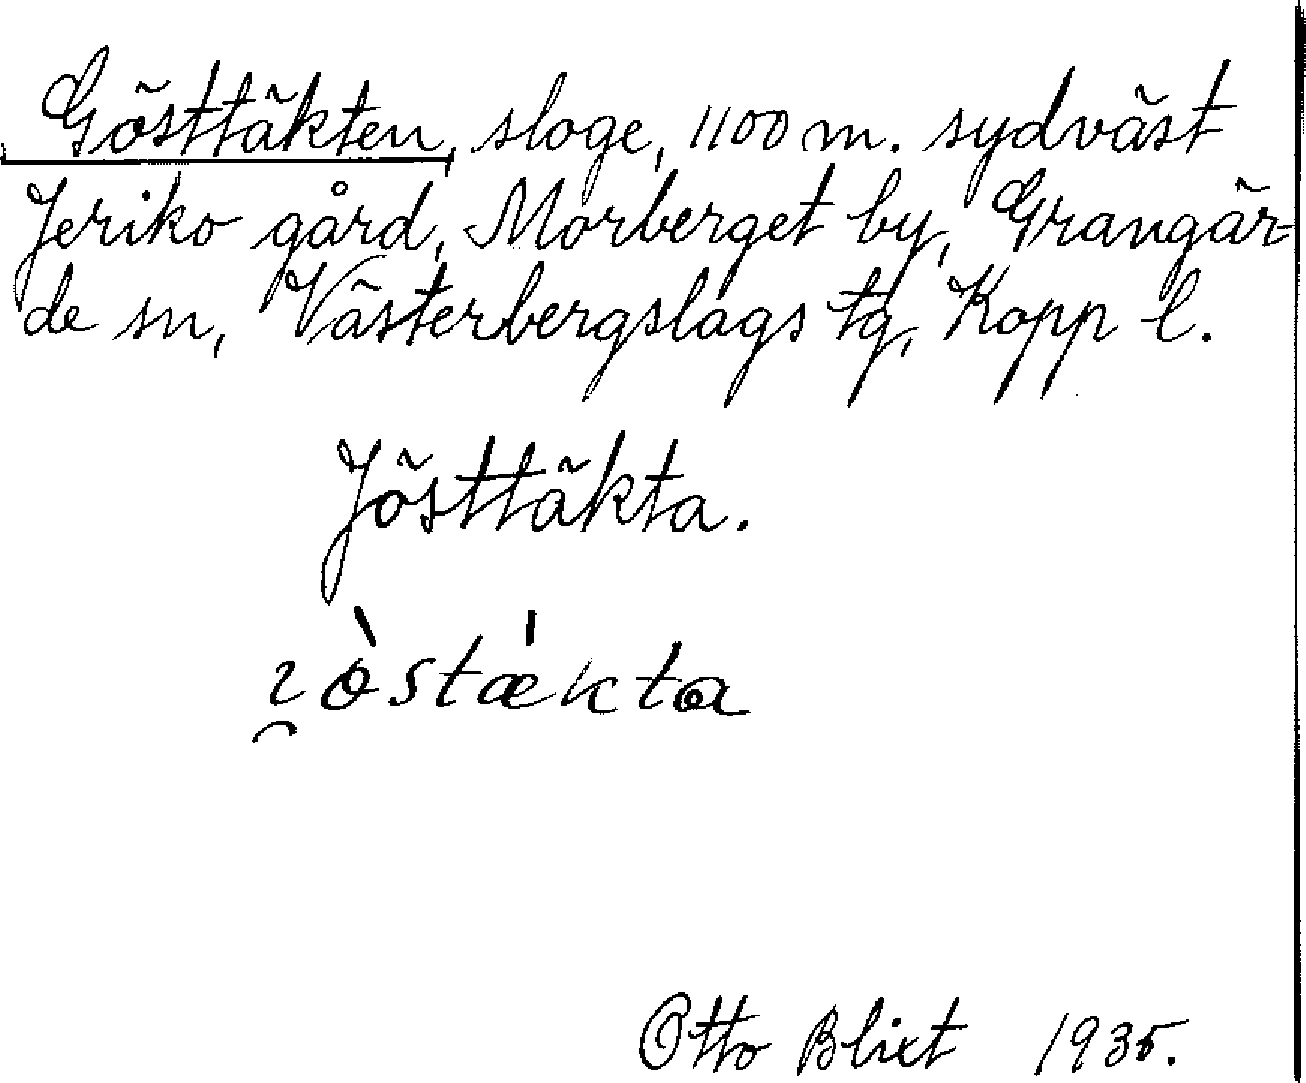 Gösttäkten, sloge, 1100 m. sydväst
Jeriko gård, Morberget by, Grangär-
de sn, Västerbergslags tg, Kopp l.
Jösttäkta.
ɿ̯òstǽkta
Otto Blixt 1935.